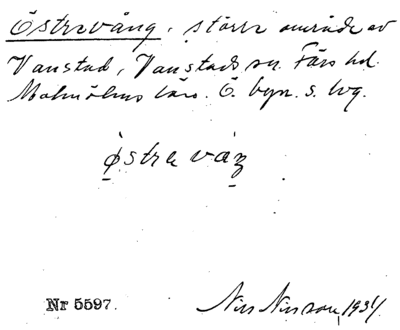 Östravång, större område av
Vanstad, Vanstads sn. Färs hd.
Malmöhus län. Ö. byn. s. vg.
østra våŋ
Nr 5597.
Nils Nilsson, 1931